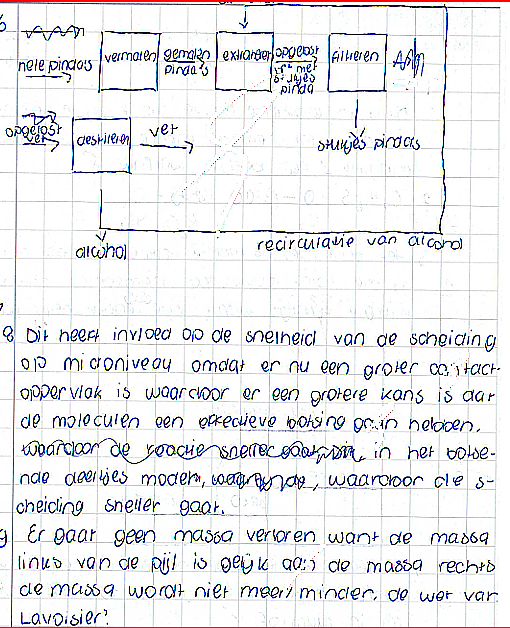 hele pindas
vermalen
gemalen
pinda's
extraheren
opgelost
vet met
stukjes
pinda
filtreren
stukjes pindas
opgelost
vet
destilleren
vet
alcohol
recirculatie van alcohol
8 Dit heeft invloed op de snelheid van de scheiding
op microniveau omdat er nu een groter contact-
oppervlak is waardoor er een grotere kans is dat
de moleculen een effectieve botsing gaan hebben.
in het botse-
nde deeltjes model, waardoor die s-
cheiding sneller gaat.
9 Er gaat geen massa verloren want de massa
links van de pijl is gelijk aan de massa rechts
de massa wordt niet meer/minder. de wet van
Lavoisier.